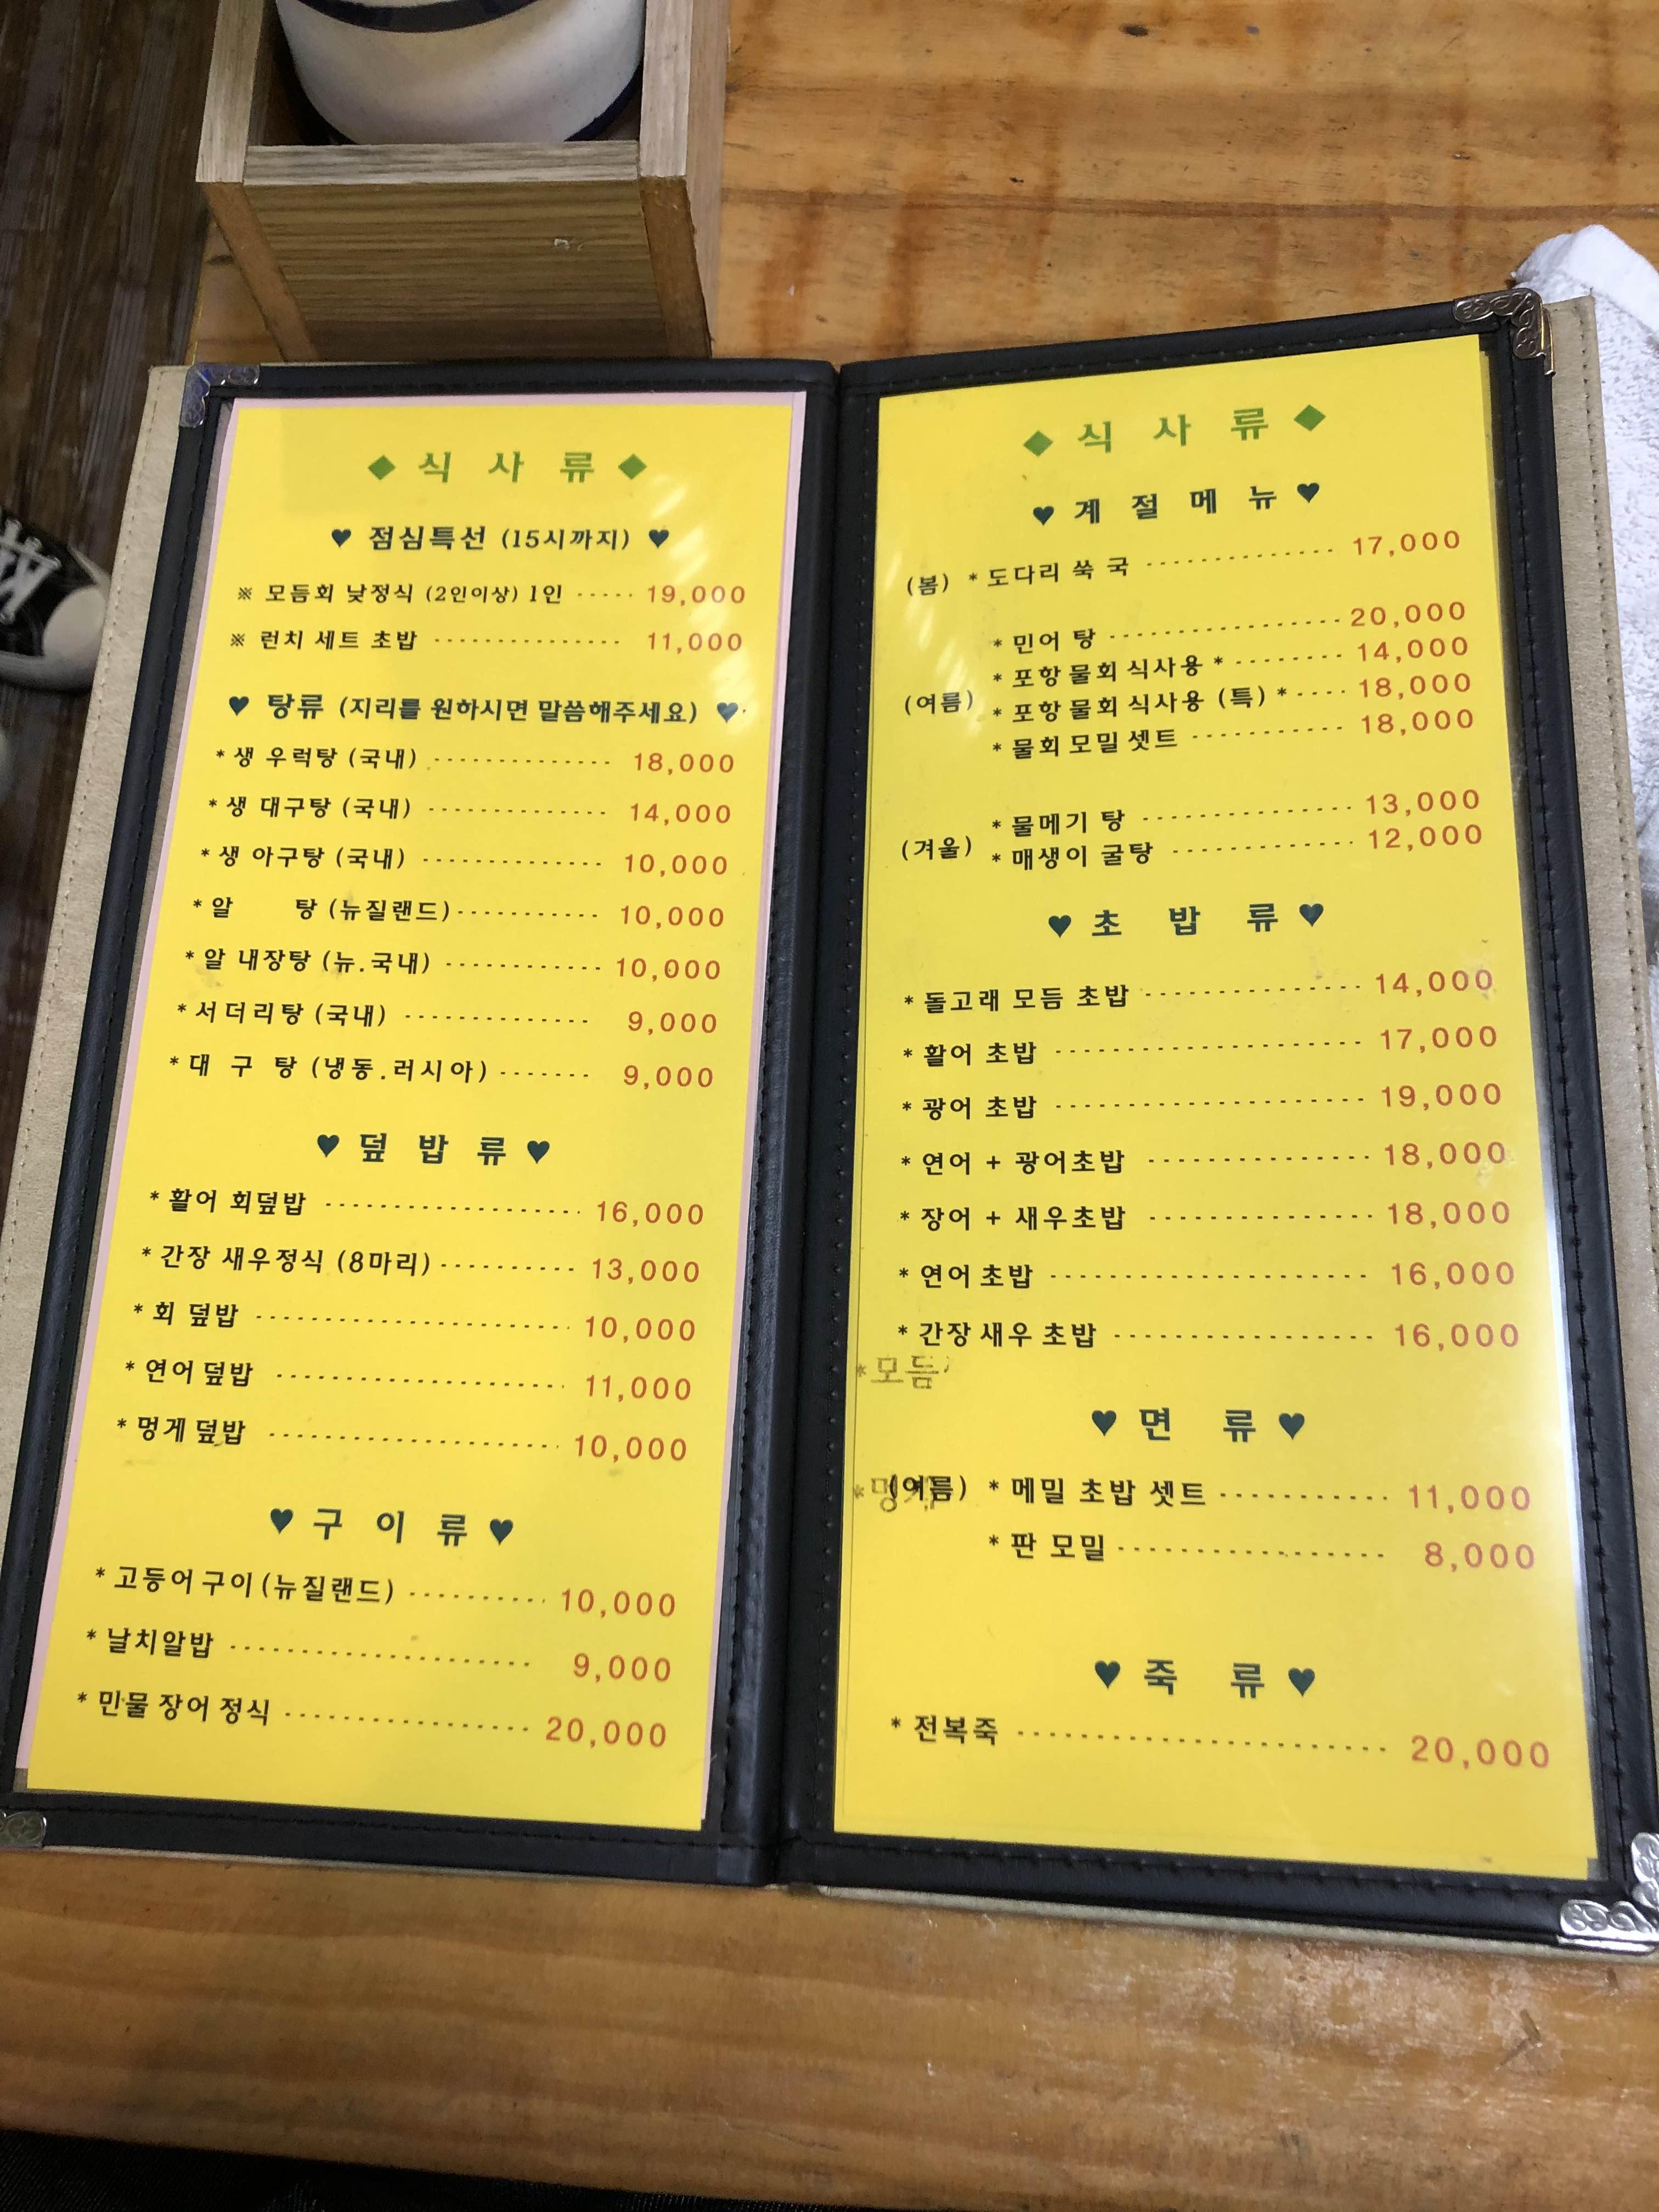 ◆ 식 사 류 ◆
♥ 점심특선 (15시까지) ♥
※ 모듬회 낮정식 (2인이상) 1인 ····· 19,000
※ 런치 세트 초밥 ················ 11,000
♥ 탕류 (지리를 원하시면 말씀해주세요) ♥
* 생 우럭탕 (국내) ··············· 18,000
* 생 대구탕 (국내) ··············· 14,000
* 생 아구탕 (국내) ··············· 10,000
* 알 탕 (뉴질랜드) ············ 10,000
* 알 내장탕 (뉴.국내) ············· 10,000
* 서더리탕 (국내) ··············· 9,000
* 대 구 탕 (냉동.러시아) ······· 9,000
♥ 덮 밥 류 ♥
* 활어 회덮밥 ····················· 16,000
* 간장 새우정식 (8마리) ·········· 13,000
* 회 덮밥 ·························· 10,000
* 연어 덮밥 ························ 11,000
* 멍게 덮밥 ························ 10,000
♥ 구 이 류 ♥
* 고등어구이 (뉴질랜드) ·········· 10,000
* 날치알밥 ························ 9,000
* 민물 장어 정식 ·················· 20,000
◆ 식 사 류 ◆
♥ 계 절 메 뉴 ♥
(봄) * 도다리 쑥 국 ··············· 17,000
* 민어 탕 ··················· 20,000
* 포항 물회 식사용 * ········ 14,000
(여름) * 포항 물회 식사용 (특) * ···· 18,000
* 물회 모밀 셋트 ············ 18,000
* 물메기 탕 ················· 13,000
(겨울) * 매생이 굴탕 ··············· 12,000
♥ 초 밥 류 ♥
* 돌고래 모듬 초밥 ················· 14,000
* 활어 초밥 ························ 17,000
* 광어 초밥 ························ 19,000
* 연어 + 광어초밥 ················· 18,000
* 장어 + 새우초밥 ················· 18,000
* 연어 초밥 ························ 16,000
* 간장 새우 초밥 ··················· 16,000
* 모듬
♥ 면 류 ♥
(여름) * 메밀 초밥 셋트 ············· 11,000
* 판 모밀 ···················· 8,000
♥ 죽 류 ♥
* 전복죽 ··························· 20,000